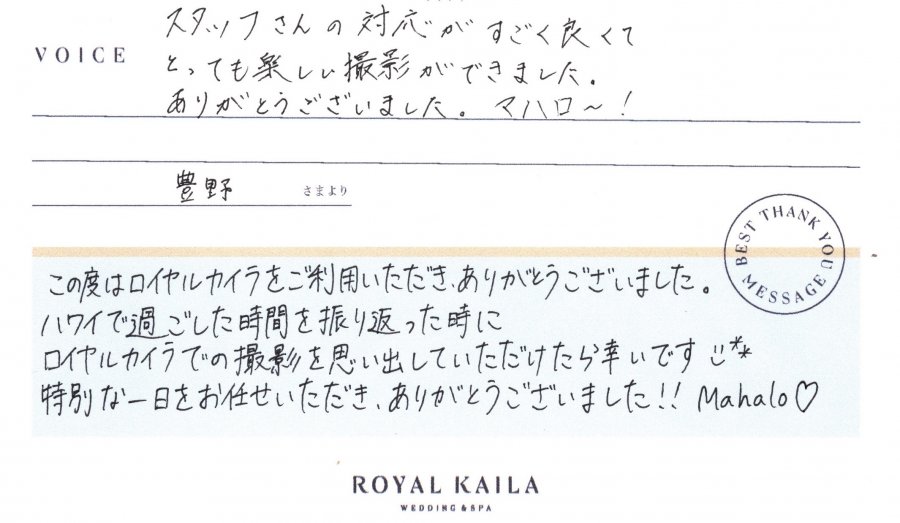 スタッフさんの対応がすごく良くて
VOICE
とっても楽しい撮影ができました。
ありがとうございました。マハロ〜！
豊野 さまより
BEST THANK YOU MESSAGE
この度はロイヤルカイラをご利用いただき、ありがとうございました。
ハワイで過ごした時間を振り返った時に
ロイヤルカイラでの撮影を思い出していただけたら幸いです
特別な一日をお任せいただき、ありがとうございました!! Mahalo♡
ROYAL KAILA
WEDDING & SPA